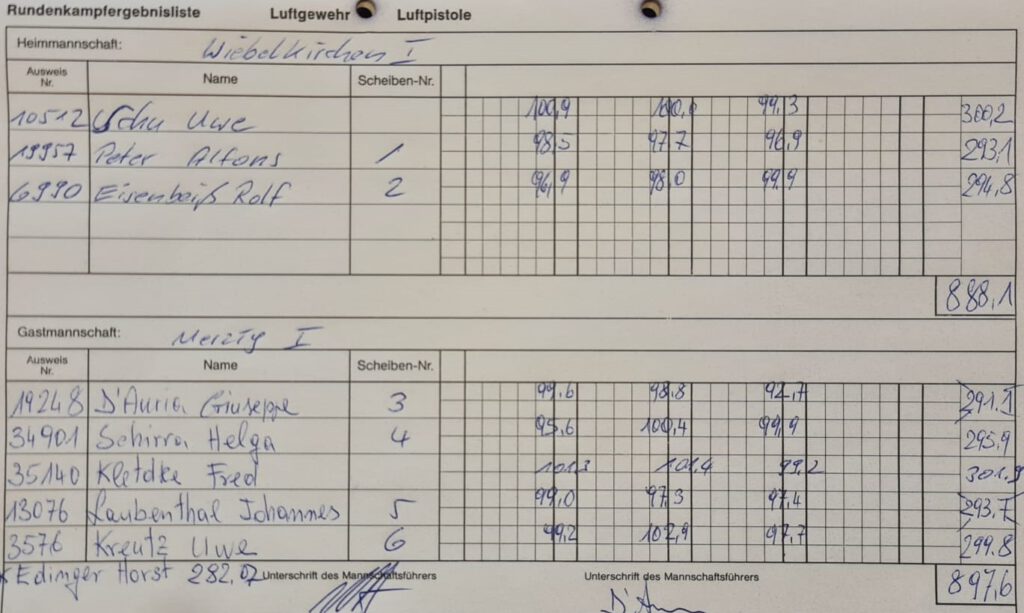 Rundenkampfergebnisliste Luftgewehr Luftpistole
Heimmannschaft: Wiebelkirchen I
Ausweis Nr. Name Scheiben-Nr.
10512 Uwe 100,9 99,3 300,2
19957 Peter Alfons 1 98,5 97,7 96,9 293,1
6990 Eisenbeiß Rolf 2 96,9 98,0 99,9 294,8
888,1
Gastmannschaft: Merzig I
Ausweis Nr. Name Scheiben-Nr.
19248 D'Auria Giuseppe 3 99,6 98,8 92,7 291.1
34901 Schirra Helga 4 95,6 100,4 99,9 295,9
35140 Kletdke Fred 101,3 101,4 99,2 301.9
13076 Laubenthal Johannes 5 99,0 97,3 97,4 293,7
3576 Kreutz Uwe 6 99,2 102,9 97,7 299.8
x Edinger Horst Unterschrift des Mannschaftsführers Unterschrift des Mannschaftsführers 897,6